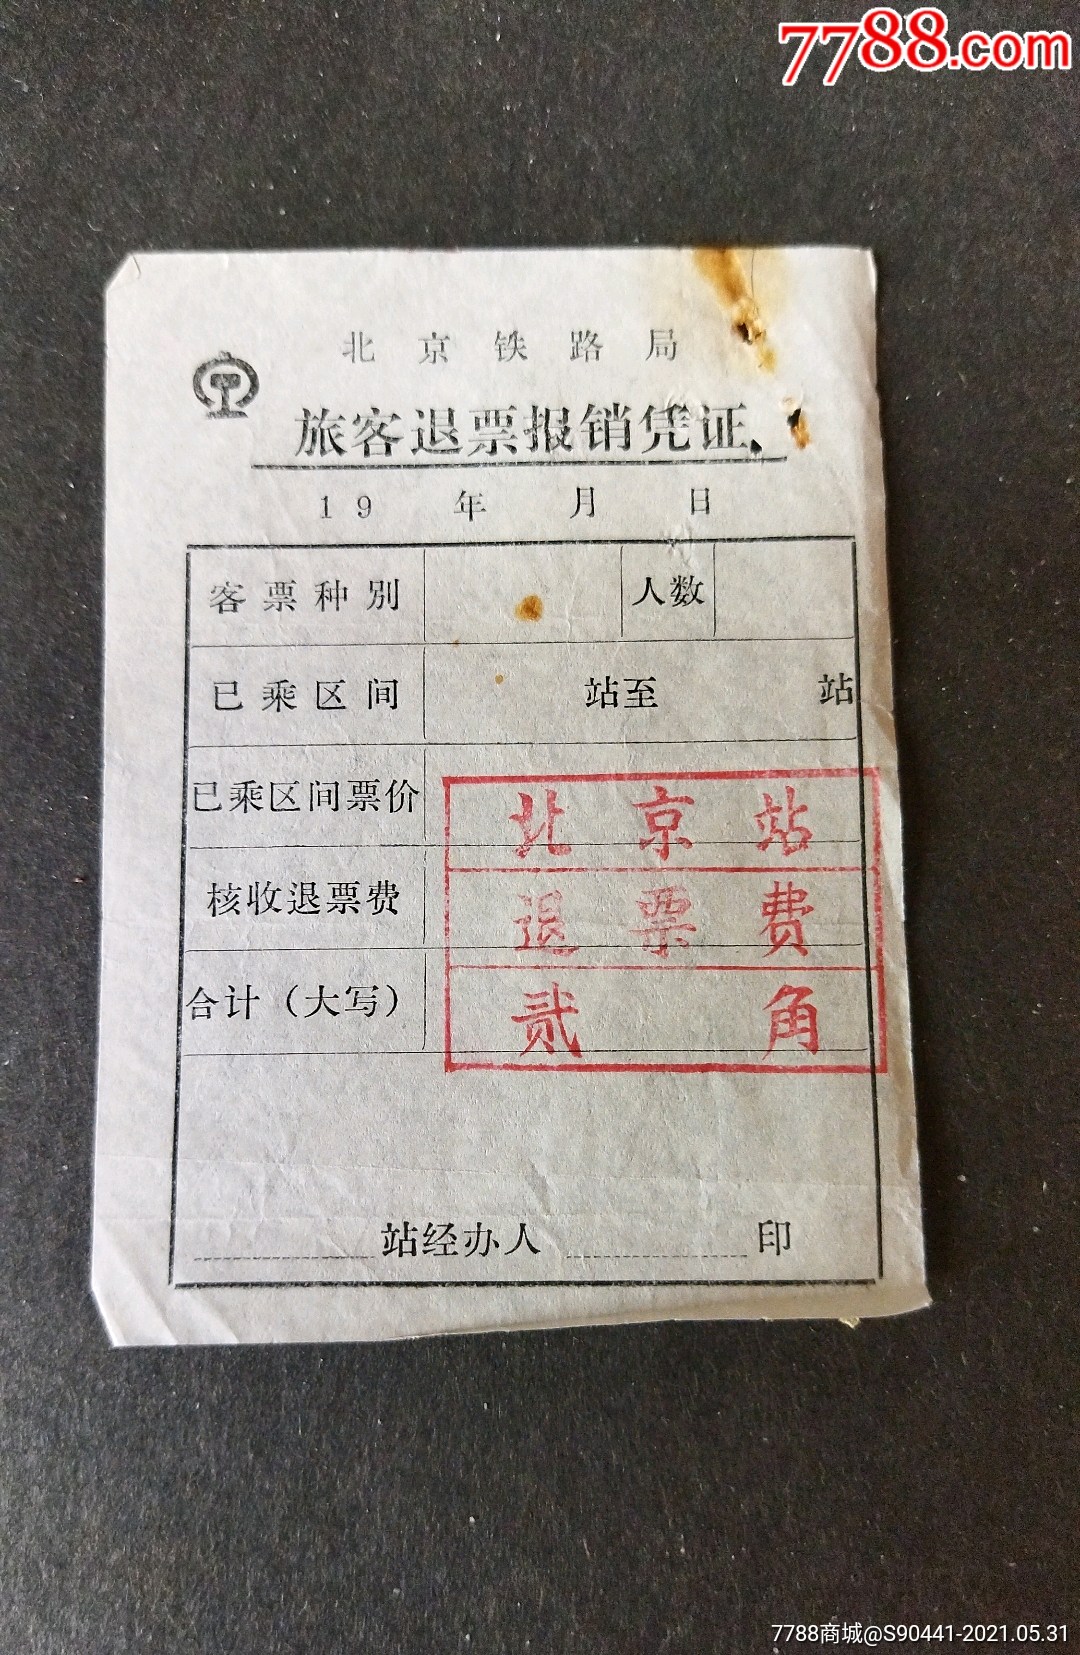 7788.com
北京铁路局
旅客退票报销凭证
19 年 月 日
客票种别 人数
已乘区间 站至 站
已乘区间票价
北京站
核收退票费
退票费
合计（大写）
贰角
站经办人 印
7788商城@S90441-2021.05.31